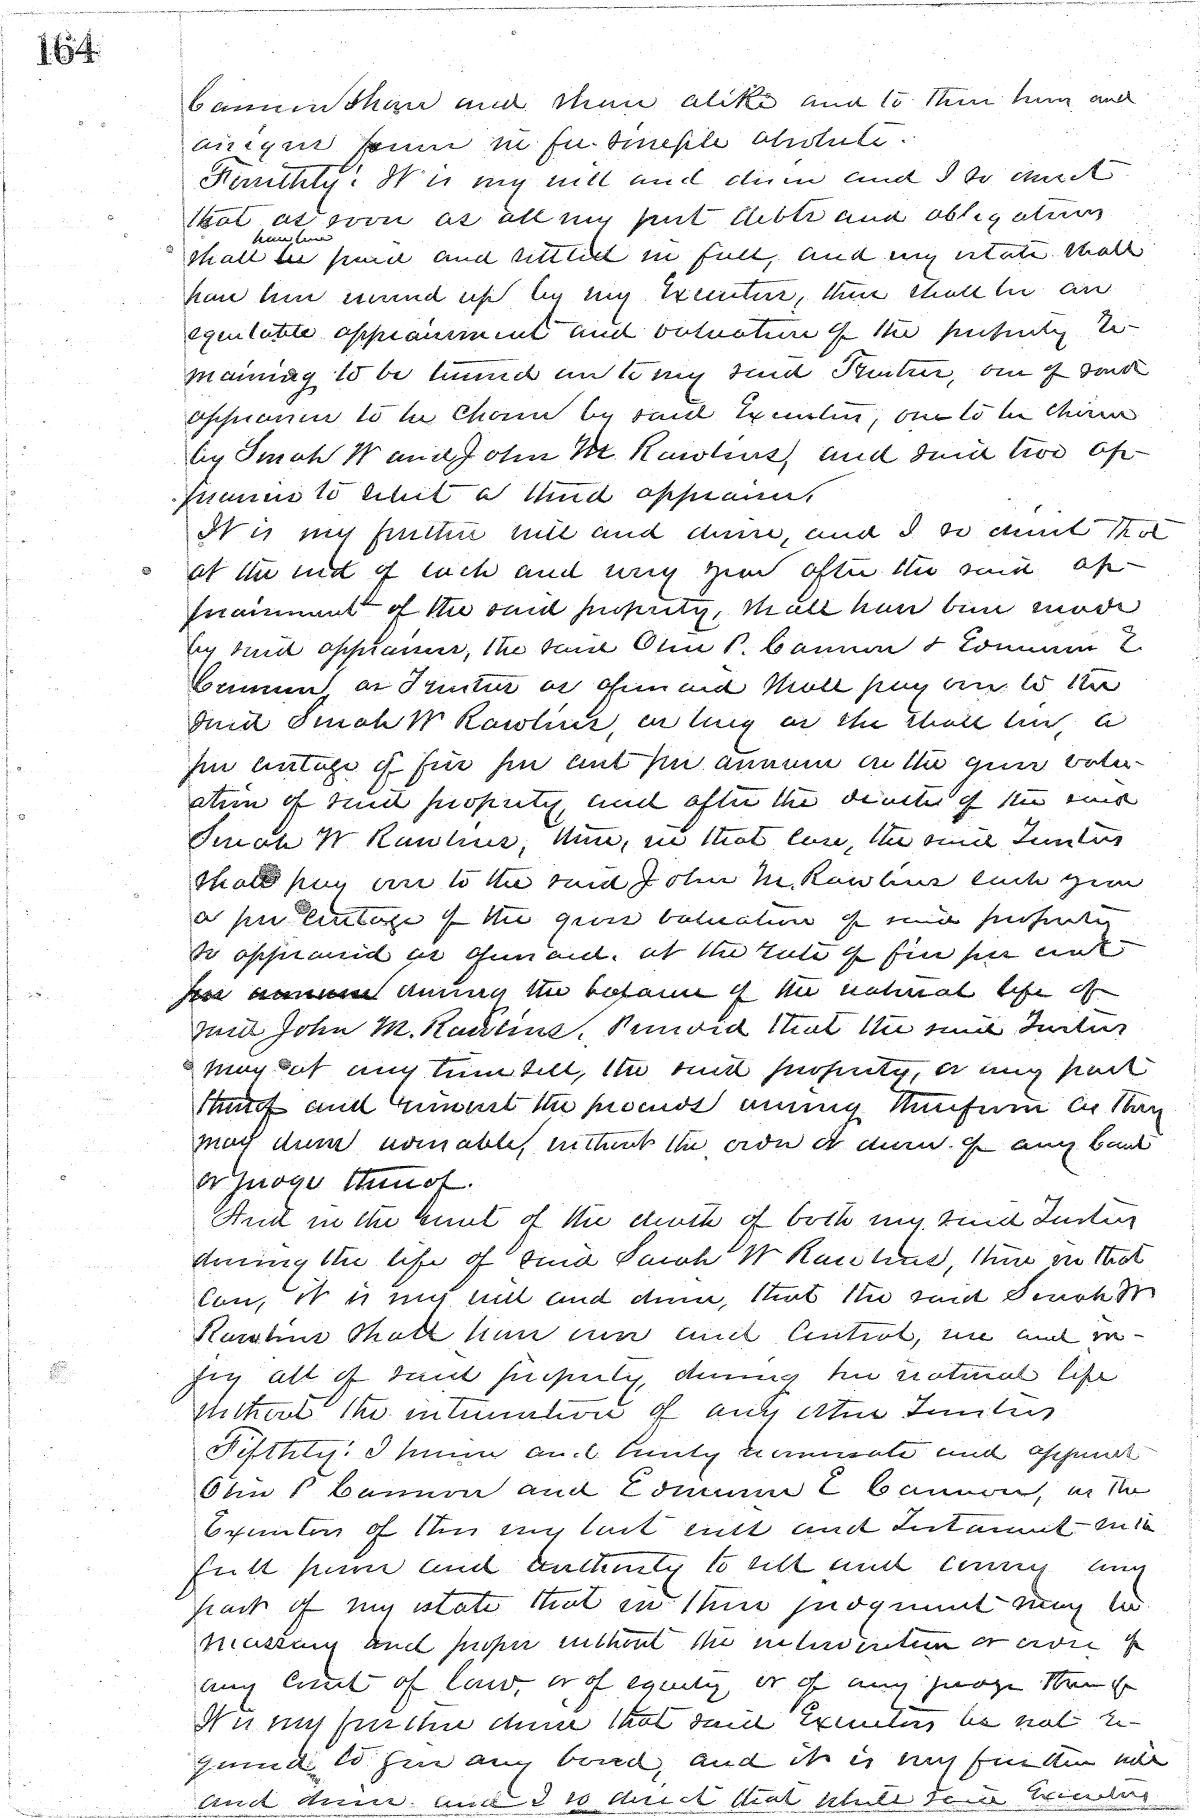 164
Cannon Share and share alike and to their heirs and
assigns forever in fee simple absolute.
Fourthly: It is my will and desire and I so direct
that as soon as all my just debts and obligations
have been
shall be paid and settled in full, and my estate shall
have been wound up by my Executors, there shall be an
equitable appraisement and valuation of the property re-
maining to be turned over to my said Trustees, one of said
appraisers to be chosen by said Executors, one to be chosen
by Sarah W and John M Rawlins, and said two ap-
praisers to select a third appraiser,
It is my further will and desire, and I so direct that
at the end of each and every year after the said ap-
praisement of the said property, shall have been made
by said appraisers, the said Olin P. Cannon & Edmunn E
Cannon, as Trustees as aforesaid shall pay over to the
said Sarah W Rawlins, as long as she shall live, a
per centage of five per cent per annum on the gross valu-
ation of said property, and after the death of the said
Sarah W Rawlins, then, in that case, the said Trustees
shall pay over to the said John M. Rawlins each year
a per centage of the gross valuation of said property
so appraised as aforesaid. at the rate of five per cent
per annum during the balance of the natural life of
said John M. Rawlins. Provided that the said Trustees
may at any time sell, the said property, or any part
thereof and reinvest the proceeds arising therefrom as they
may deem advisable, without the order or decree of any Court
or Judge thereof.
And in the event of the death of both my said Trustees
during the life of said Sarah W Rawlins, then in that
case, it is my will and desire, that the said Sarah W
Rawlins shall have own and control, use and en-
joy all of said property, during her natural life
without the intervention of any other Trustees
Fifthly: I hereby nominate and appoint
Olin P Cannon and Edmunn E Cannon, as the
Executors of this my last will and Testament with
full power and authority to sell and convey any
part of my estate that in their judgment may be
necessary and proper without the intervention or order of
any Court of law, or of equity or of any judge thereof
It is my further desire that said Executors be not re-
quired to give any bond, and it is my further will
and desire and I so direct that while said Executors